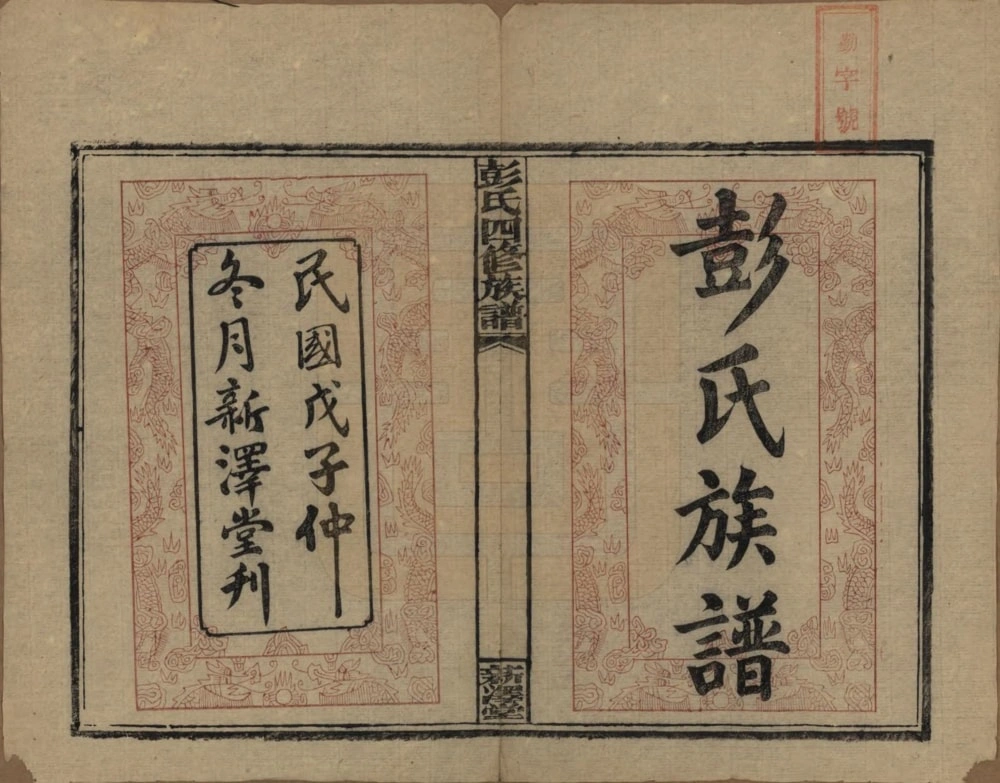 字號
彭氏族譜
彭氏四修族譜
新澤堂
民國戊子仲
冬月新澤堂刊